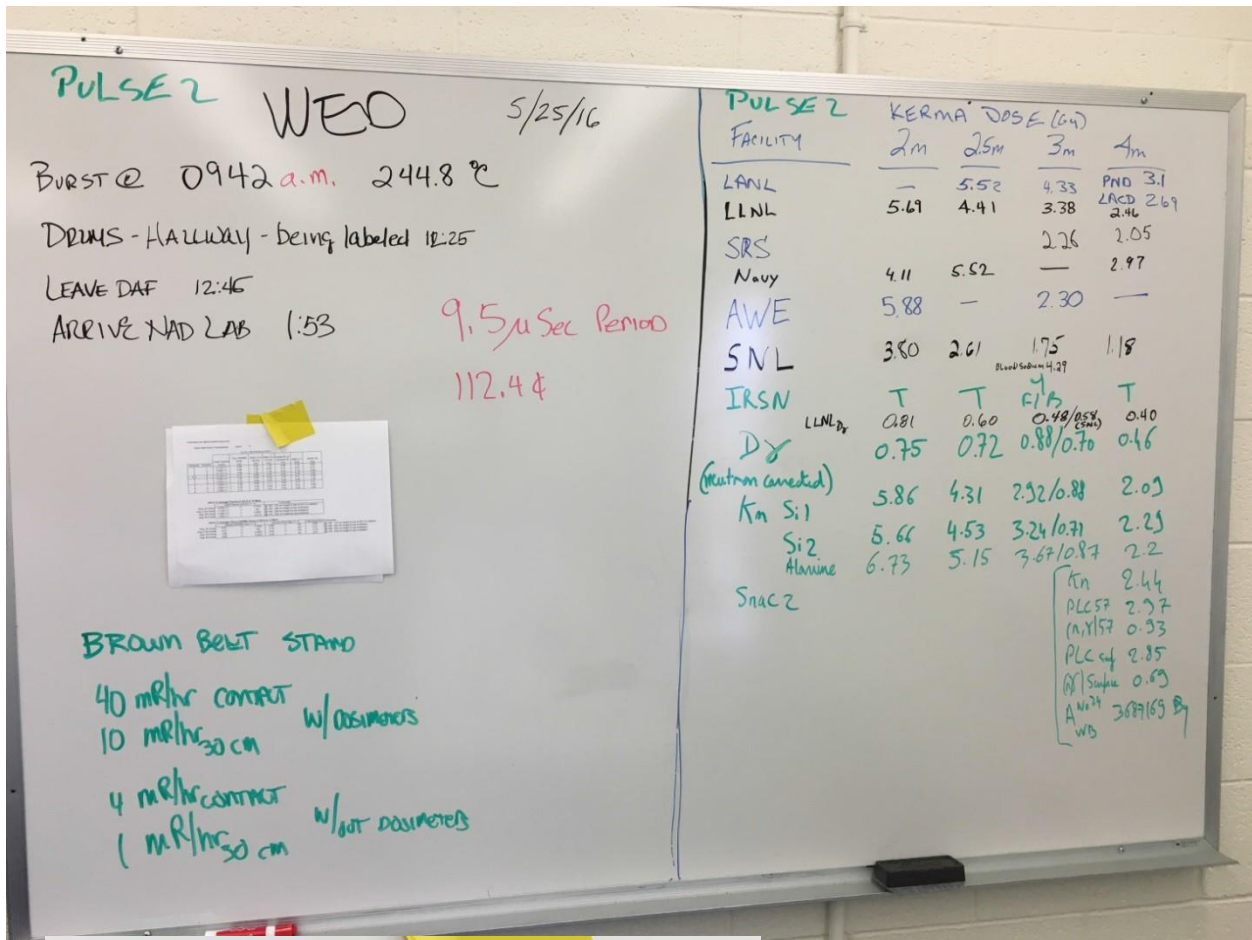 PULSE 2 WED 5/25/16
BURST @ 0942 a.m. 244.8 °C
DRUMS - HALLWAY - being labeled 12:25
LEAVE DAF 12:45
ARRIVE NAD LAB 1:53
9.5 μSec PERIOD
112.4 ¢
BROWN BELT STAND
40 mR/hr CONTACT
10 mR/hr 30 cm
W/ DOSIMETERS
4 mR/hr CONTACT
1 mR/hr 30 cm
W/OUT DOSIMETERS
PULSE 2 KERMA DOSE (Gy)
FACILITY 2m 2.5m 3m 4m
LANL — 5.52 4.33 PND 3.1
LACD 2.69
LLNL 5.69 4.41 3.38 2.46
SRS 2.26 2.05
Navy 4.11 5.52 — 2.97
AWE 5.88 — 2.30 —
SNL 3.80 2.61 1.75 1.18
Blood Sodium 4.29
IRSN T T F/B T
LLNL Dγ 0.81 0.60 0.48/0.58 (SNL) 0.40
Dγ 0.75 0.72 0.88/0.70 0.46
(neutron corrected)
Kn Si1 5.86 4.31 2.92/0.88 2.09
Si2 5.66 4.53 3.24/0.71 2.29
Alanine 6.73 5.15 3.67/0.87 2.2
Snac 2
Kn 2.44
PLC57 2.97
(n,γ)57 0.93
PLC surf 2.85
0.69
A Na24 WB 3687169 Bq